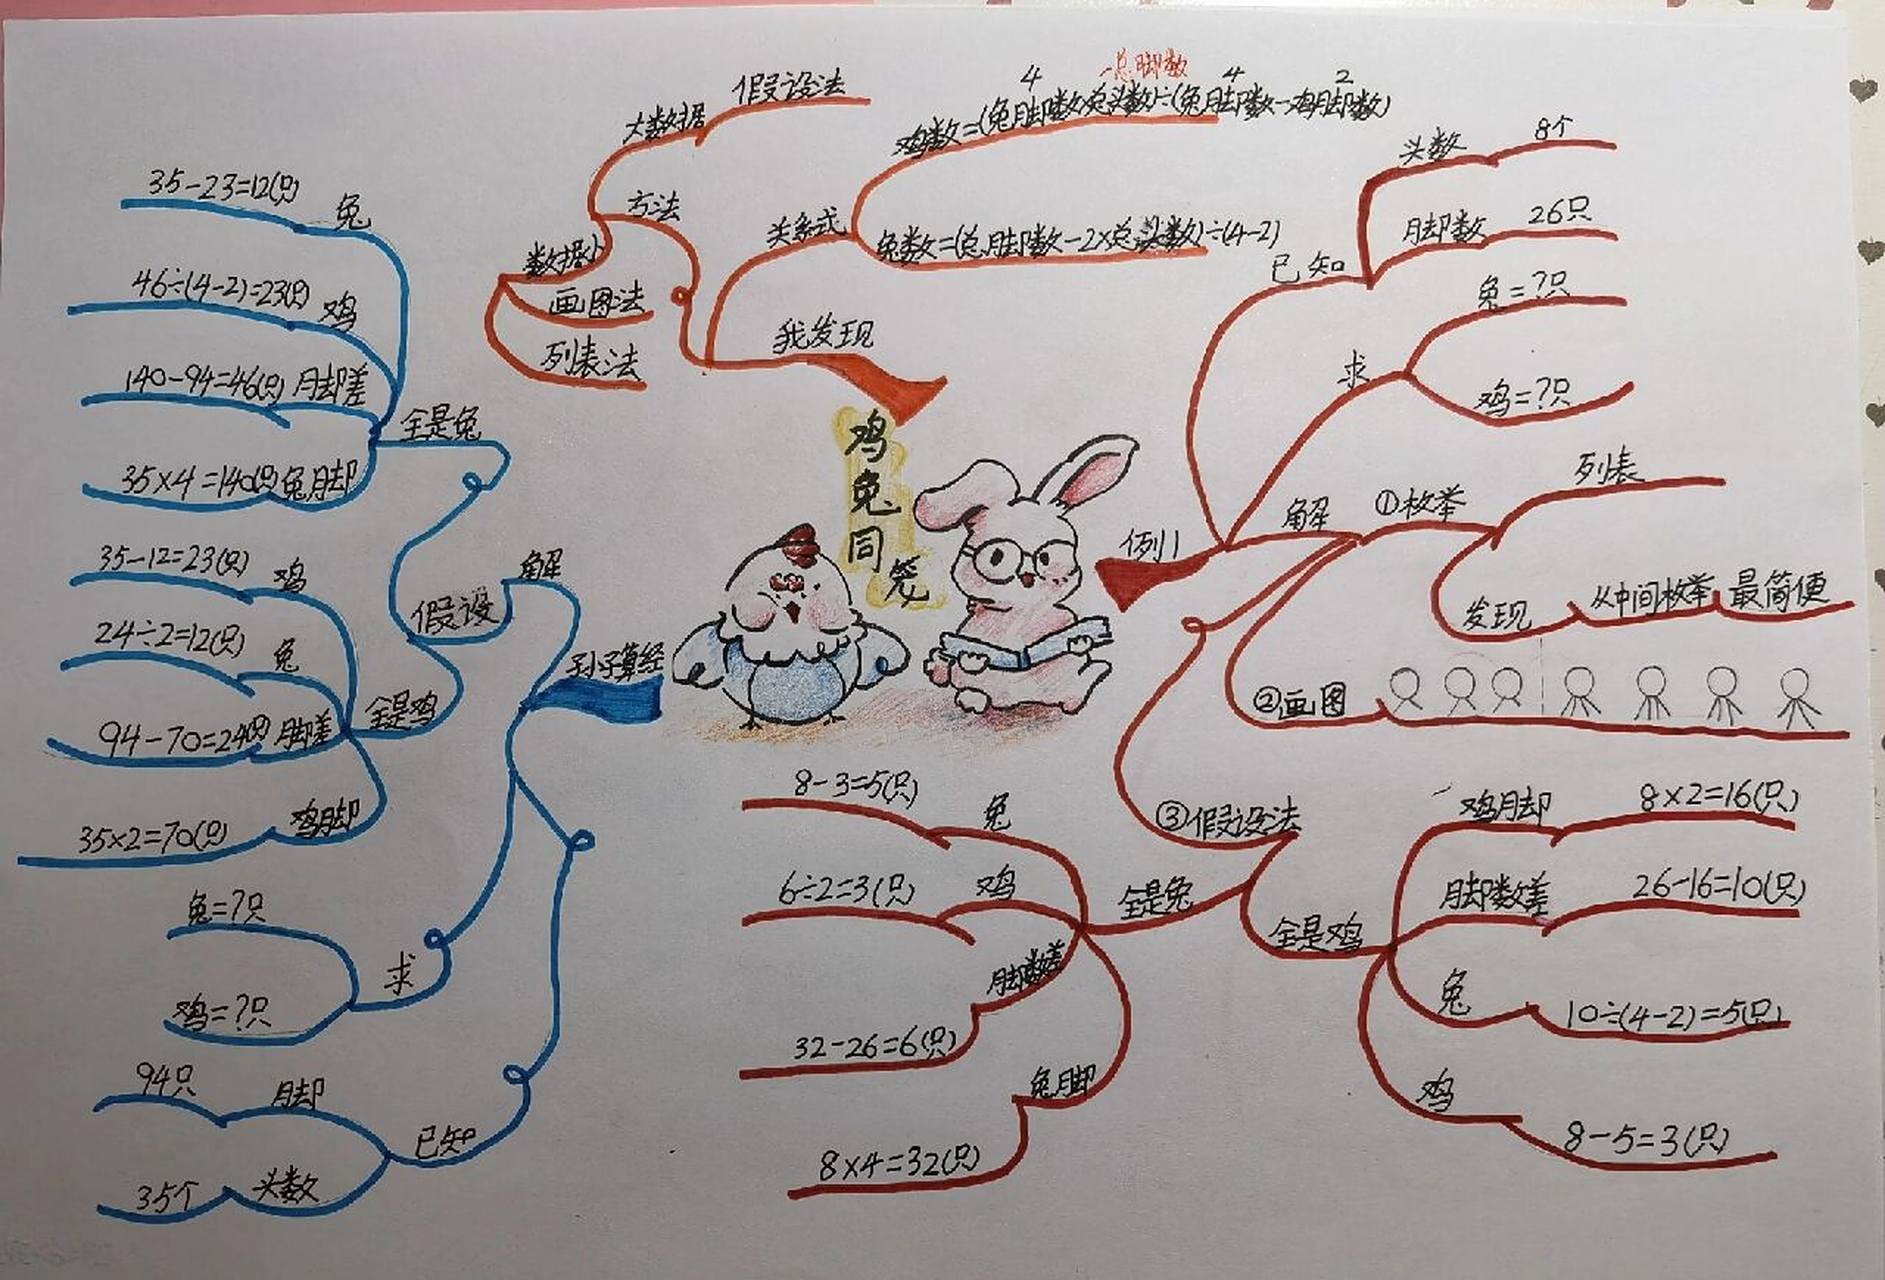 鸡兔同笼
例1
已知
头数
8个
脚数
26只
求
兔=?只
鸡=?只
解
①枚举
列表
发现
从中间枚举
最简便
②画图
③假设法
全是鸡
鸡脚
8×2=16(只)
脚数差
26-16=10(只)
兔
10÷(4-2)=5(只)
鸡
8-5=3(只)
全是兔
兔
8-3=5(只)
鸡
6÷2=3(只)
脚数差
32-26=6(只)
兔脚
8×4=32(只)
孙子算经
已知
脚
94只
头数
35个
求
兔=?只
鸡=?只
解
假设
全是鸡
鸡
35-12=23(只)
兔
24÷2=12(只)
脚差
94-70=24(只)
鸡脚
35×2=70(只)
全是兔
兔
35-23=12(只)
鸡
46÷(4-2)=23(只)
脚差
140-94=46(只)
兔脚
35×4=140(只)
我发现
方法
大数据
假设法
数据小
画图法
列表法
关系式
4 -总脚数 4 2
鸡数=(兔脚数×总头数)÷(兔脚数-鸡脚数)
兔数=(总脚数-2×总头数)÷(4-2)